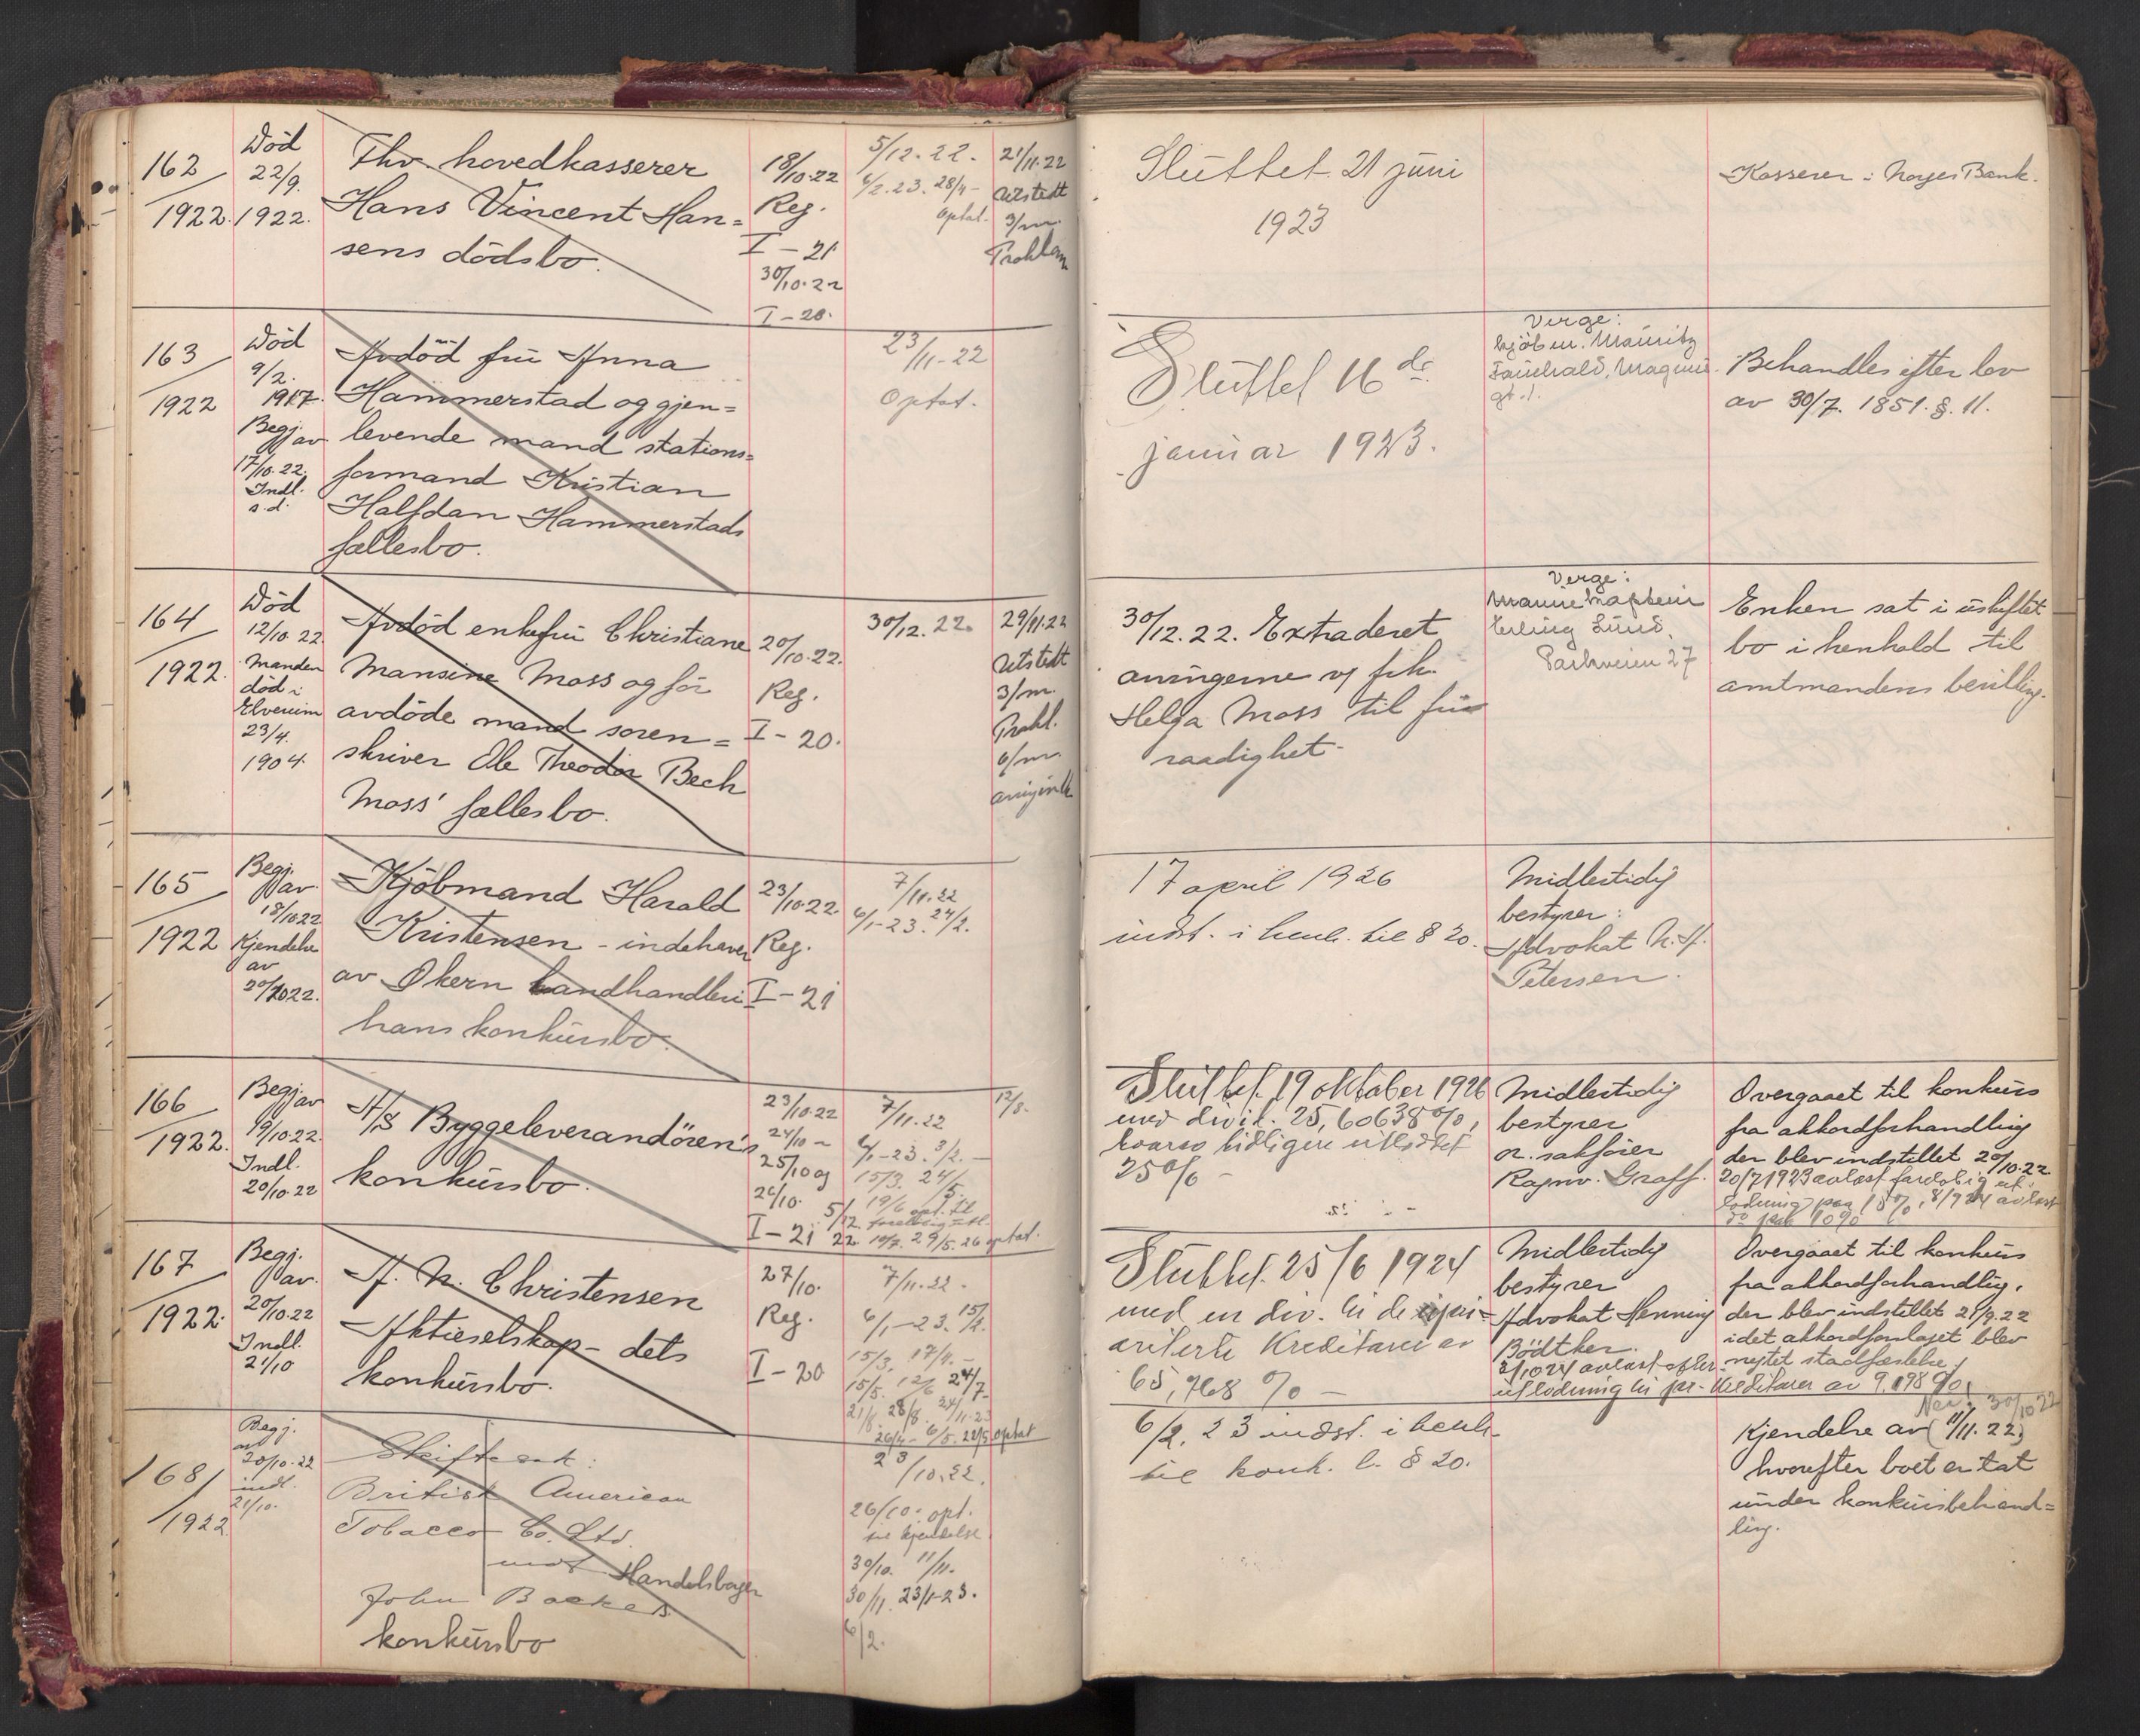 162
1922.
Död
22/9.
1922.
Fhv. hovedkasserer
Hans Vincent Han=
sens dödsbo.
18/10.22
Reg.
I - 21
30/10.22
I - 20.
5/12. 22.
6/2. 23. 28/4 -
optat.
21/11.22
Utstedt
3/m.
Proklam
Sluttet 21 juni
1923
Kasserer i Norges Bank.
163
1922
Död
9/2.
1917.
Begj. av
17/10.22.
Indl.
s.d.
Avdöd frü Anna
Hammerstad og gjen=
levende mand stations=
formand Kristian
Halfdan Hammerstads
fællesbo.
23/11-22
Optat.
Sluttet 16 de
januar 1923.
Verge:
kjöbm. Mauritz
Behandles efter lov
av 30/7. 1851. §. 11.
164
1922.
Död
12/10.22
Manden
död i
Elverum
23/4.
1904.
Avdöd enkefrü Christiane
Mansine Moss og för
avdöde mand soren=
skriver Ole Theodor Bech
Moss' fællesbo.
20/10.22.
Reg.
I - 20.
30/12. 22.
29/11.22
Utstedt
3/m.
Prokl.
6/m.
30/12.22. Extraderet
arvingerne v/ frk.
Helga Moss til fri
raadighet.
Verge:
Erling Lund.
Parkveien 27
Enken sat i uskiftet
bo i henhold til
amtmandens bevilling.
165
1922
Begj.
av
18/10.22
Kjendelse
av
20/10.22.
Kjöbmand Harald
Kristensen - indehaver
av Økern Landhandleri
hans konkursbo.
23/10.22.
Reg.
I - 21
7/11.22
6/1-23. 24/2.
17 april 1926
indst. i henh. til § 20.
Midlertidig
bestyrer:
Advokat N. A.
Petersen.
166
1922.
Begj. av
19/10.22.
Indl.
20/10.22
A/S Byggeleverandören's
konkursbo.
23/10.22
24/10 -
25/10 og
26/10.
I - 21
7/11.22
6/1-23. 3/2. -
15/3. 24/5.
5/12 22
19/6 opt. til
10/7. 29/5. 26 optat.
12/8.
Sluttet 19 oktober 1926
med divid. 25,60638 %,
hvorav tidligere utloddet
25 % -
Midlertidig
bestyrer
o.r. sakförer
Ragnv. Graff.
Overgaaet til konkurs
fra akkordforhandling
der blev indstillet 20/10.22
20/7 1923 avlæst foreløbig ut-
lodning paa 15 %, 8/1 924 avlæst
do paa 10 %
167
1922.
Begj.
av.
20/10.22
Indl.
21/10
A. N. Christensen
Aktieselskap - dets
konkursbo.
27/10.
Reg.
I - 20
7/11.22 -
6/1-23. 15/2.
15/3. 17/4. -
15/5. 12/6 24/7-
21/8. 28/8. 24/11.23
26/4 - 6/5. 22/5 optat
Sluttet 25/6 1924
med en div. til de upri=
oriterte Kreditorer av
65,768 % -
Midlertidig
bestyrer
Advokat Henning
Bödtker.
2/10 24 avlæst efter
utlodning til pr. Kreditorer av 9.198 %
Overgaaet til konkurs
fra akkordforhandling,
der blev indstillet 21/9.22
idet akkordforslaget blev
negtet stadfæstelse.
168/
1922
Begj.
av
20/10.22
indl.
21/10.
Skiftesak:
British American
Tobacco Co. Ltd.
mot Handelsborger
John Backes
konkursbo
23/10.22.
26/10. opt.
til kjendelse
30/10. 11/11.
30/11. 23/1-23.
6/2.
6/2. 23 indst. i henh.
til konk. l. § 20.
Nei. 30/10 22
Kjendelse av (11/11.22)
hvorefter boet er tat
under konkursbehand=
ling.